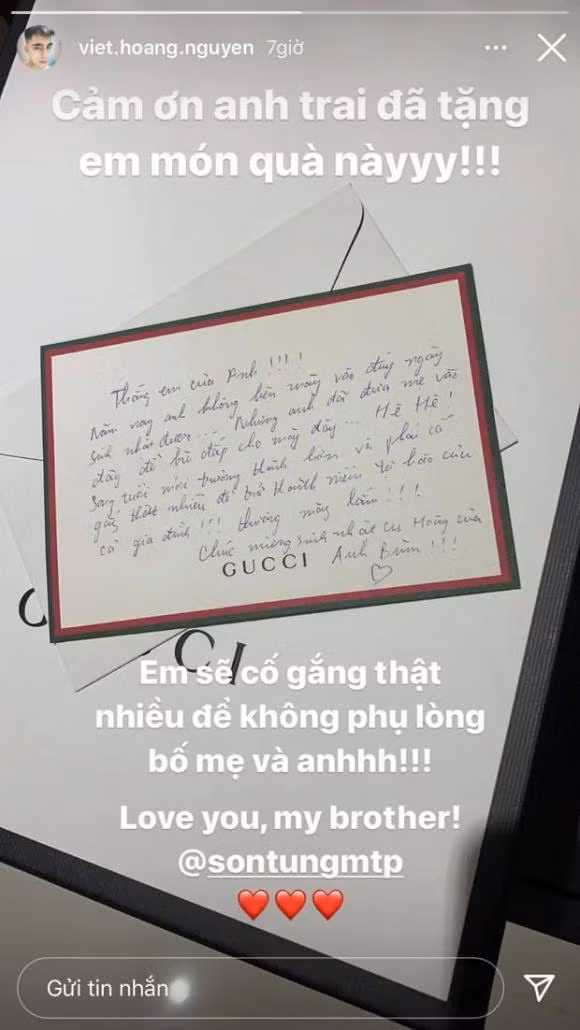 viet.hoang.nguyen 7giờ
Cảm ơn anh trai đã tặng
em món quà nàyyy!!!
Thằng em của Anh !!!!
Năm nay anh không bên mày vào đúng ngày
sinh nhật được... Nhưng anh đã đưa mẹ vào
đây để bù đắp cho mày đây... Hề Hề!
Sang tuổi mới trưởng thành hơn và phải cố
gắng thật nhiều để trở thành niềm tự hào của
cả gia đình !!! thương mày lắm !!!
Chúc mừng sinh nhật Cu Hoàng của
Anh Bùm !!!
GUCCI
CI
Em sẽ cố gắng thật
nhiều để không phụ lòng
bố mẹ và anhhh!!!
Love you, my brother!
@sontungmtp
❤️❤️❤️
Gửi tin nhắn